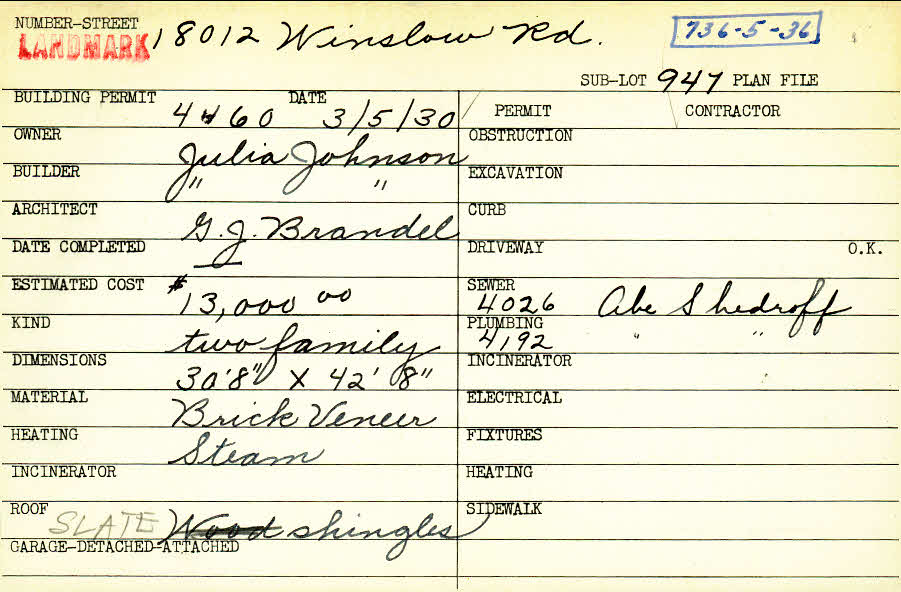 NUMBER-STREET
LANDMARK 18012 Winslow Rd. 736-5-36
SUB-LOT 947 PLAN FILE
BUILDING PERMIT 4460 DATE 3/5/30
PERMIT CONTRACTOR
OWNER Julia Johnson
OBSTRUCTION
BUILDER " "
EXCAVATION
ARCHITECT G. J. Brandel
CURB
DATE COMPLETED —
DRIVEWAY O.K.
ESTIMATED COST $13,000 00
SEWER 4026 Abe Shedroff
KIND two family
PLUMBING 4192 " "
DIMENSIONS 30'8" X 42' 8"
INCINERATOR
MATERIAL Brick Veneer
ELECTRICAL
HEATING Steam
FIXTURES
INCINERATOR
HEATING
ROOF SLATE Wood shingles
SIDEWALK
GARAGE-DETACHED-ATTACHED